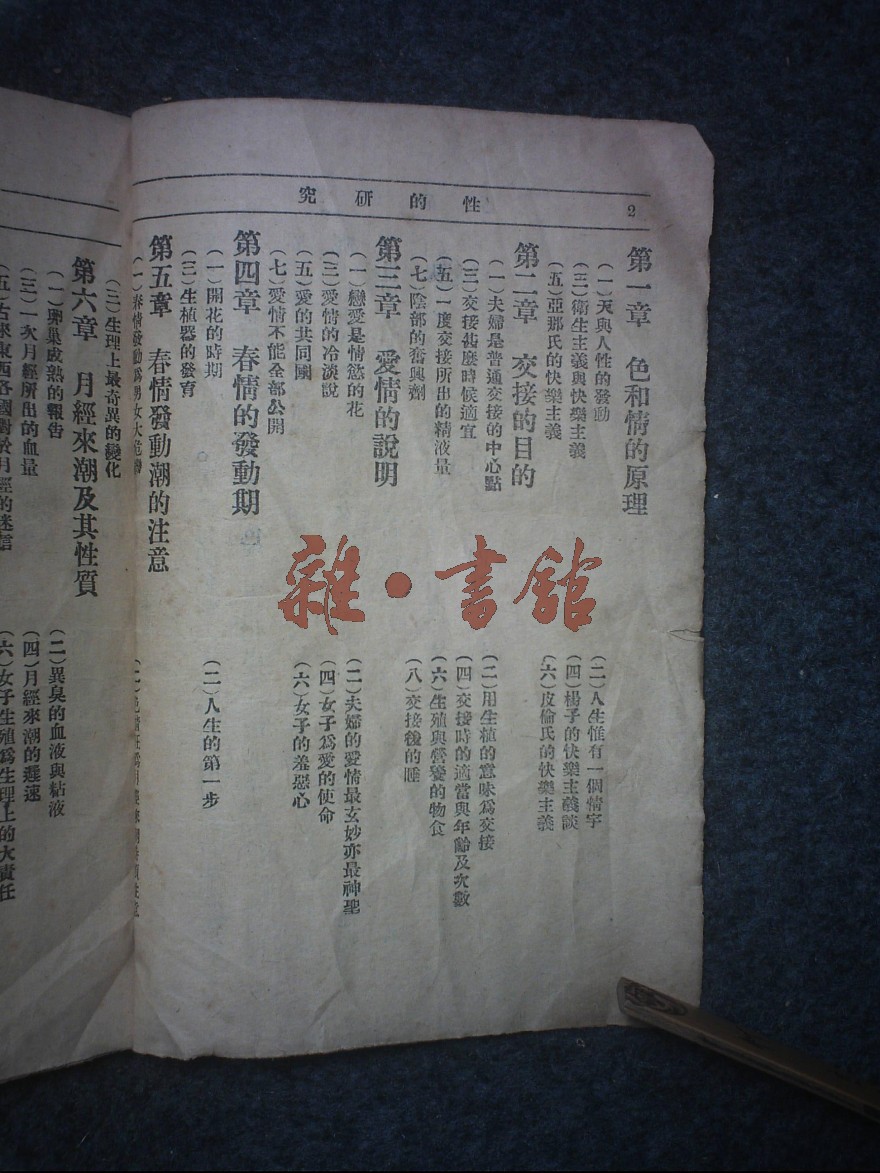 性的研究
2
第一章 色和情的原理
(一)天與人性的發動
(二)人生惟有一個情字
(三)衛生主義與快樂主義
(四)楊子的快樂主義談
(五)亞那氏的快樂主義
(六)皮倫氏的快樂主義
第二章 交接的目的
(一)夫婦是普通交接的中心點
(二)用生植的意味爲交接
(三)交接甚麽時候適宜
(四)交接時的適當與年齡及次數
(五)一度交接所出的精液量
(六)生殖與營養的物食
(七)陰部的奮興劑
(八)交接後的睡
第三章 愛情的說明
(一)戀愛是情慾的花
(二)夫婦的愛情最玄妙亦最神聖
(三)愛情的冷淡說
(四)女子爲愛的使命
(五)愛的共同團
(六)女子的羞惡心
(七)愛情不能全部公開
第四章 春情的發動期
(一)開花的時期
(二)人生的第一步
(三)生植器的發育
第五章 春情發動潮的注意
(一)春情發動爲男女大危
(三)生理上最奇異的變化
第六章 月經來潮及其性質
(一)卵巢成熟的報告
(二)異臭的血液與粘液
(三)一次月經所出的血量
(四)月經來潮的遲速
(五)古來東西各國對於月經的迷信
(六)女子生殖爲生理上的大責任
雜·書館